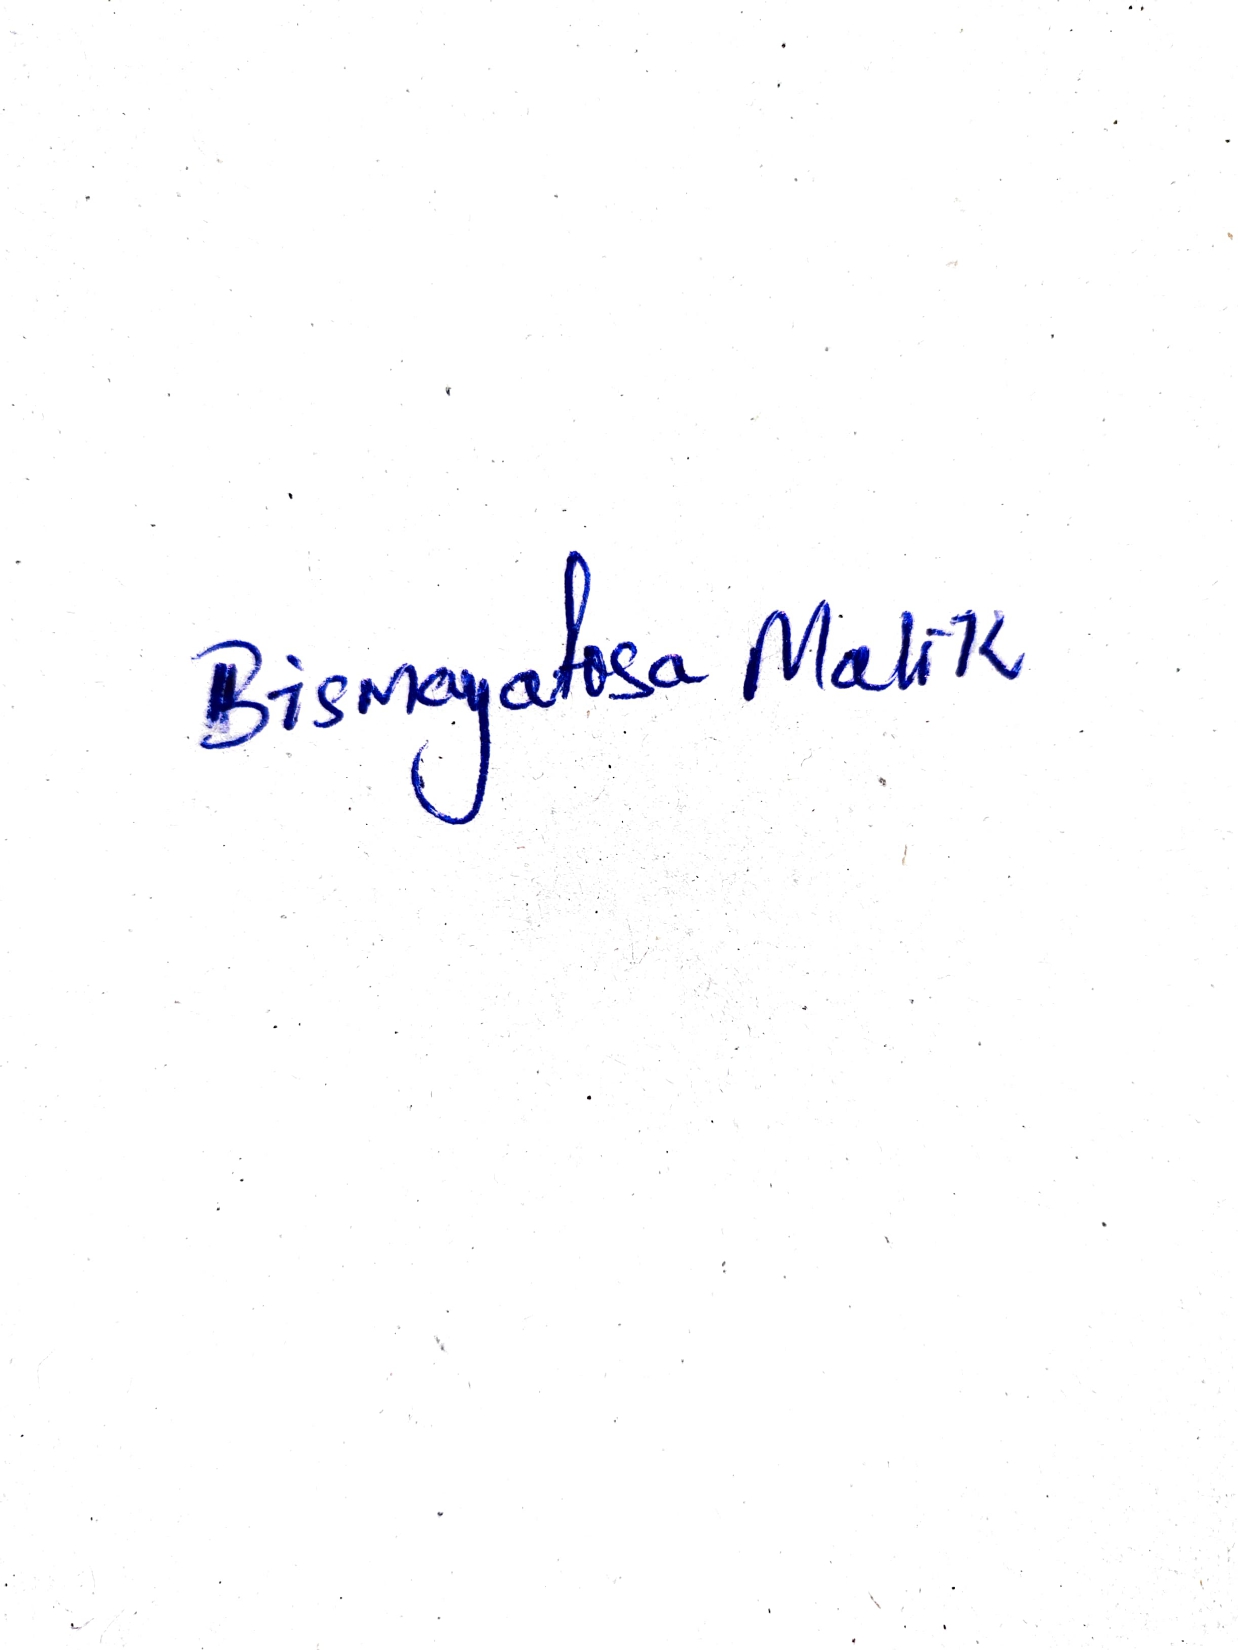 Bismayatosa Malik